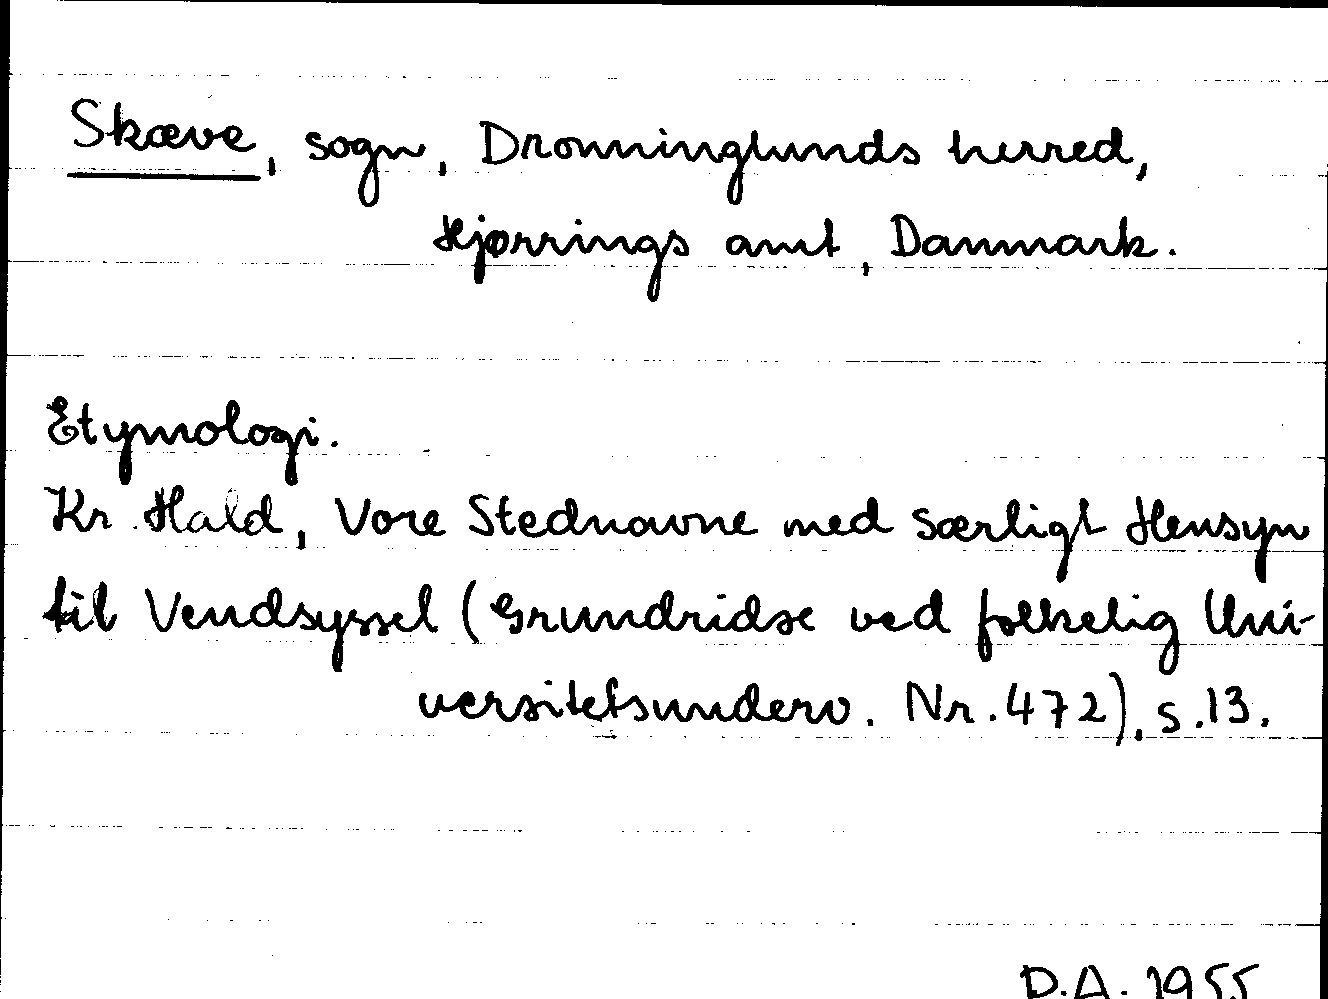 Skæve, sogn, Dronninglunds herred,
Hjørrings amt, Danmark.
Etymologi.
Kr. Hald, Vore Stednavne med særligt Hensyn
til Vendsyssel (Grundridse ved folkelig Uni-
versitetsunderv. Nr. 472), s. 13.
D.A. 1955